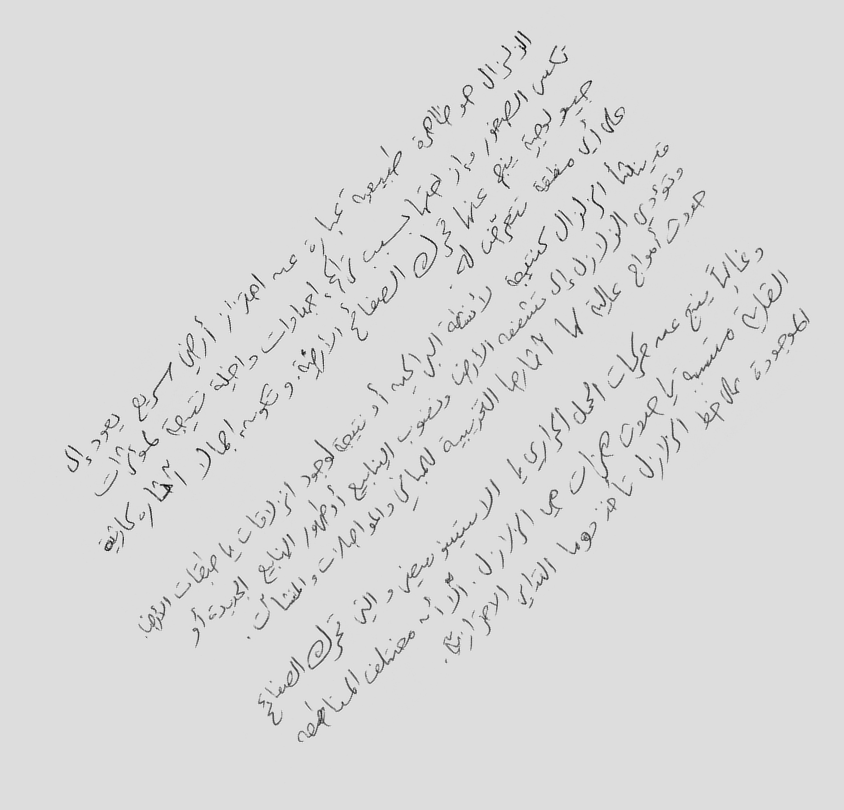 الزلزال هو ظاهرة طبيعية عبارة عن اهتزاز أرضي سريع يعود إلى
تكسر الصخور وإزاحتها بسبب تراكم إجهادات داخلية نتيجة لمؤثرات
جيولوجية ينتج عنها تحرك الصفائح الأرضية. وتكون إجمالا آثاره كارثية
على أي منطقة تتعرض له.
قد ينشأ الزلزال كنتيجة لأنشطة البراكين أو نتيجة لوجود انزلاقات في طبقات الأرض.
وتؤدي الزلازل إلى تشقق الأرض ونضوب الينابيع أو ظهور الينابيع الجديدة أو
حدوث أمواج عالية كما آثارها التخريبية للمباني والمواصلات والمنشآت.
وغالباً ينتج عن حركات الحمل الحراري في الاستينوسفير والتي تحرك الصفائح
القارية متسببة في حدوث هزات هي الزلازل. إلّا أنه مختلف المناطق
الموجودة على خط الزلازل تأخذ دوما التدابير الاحترازية.